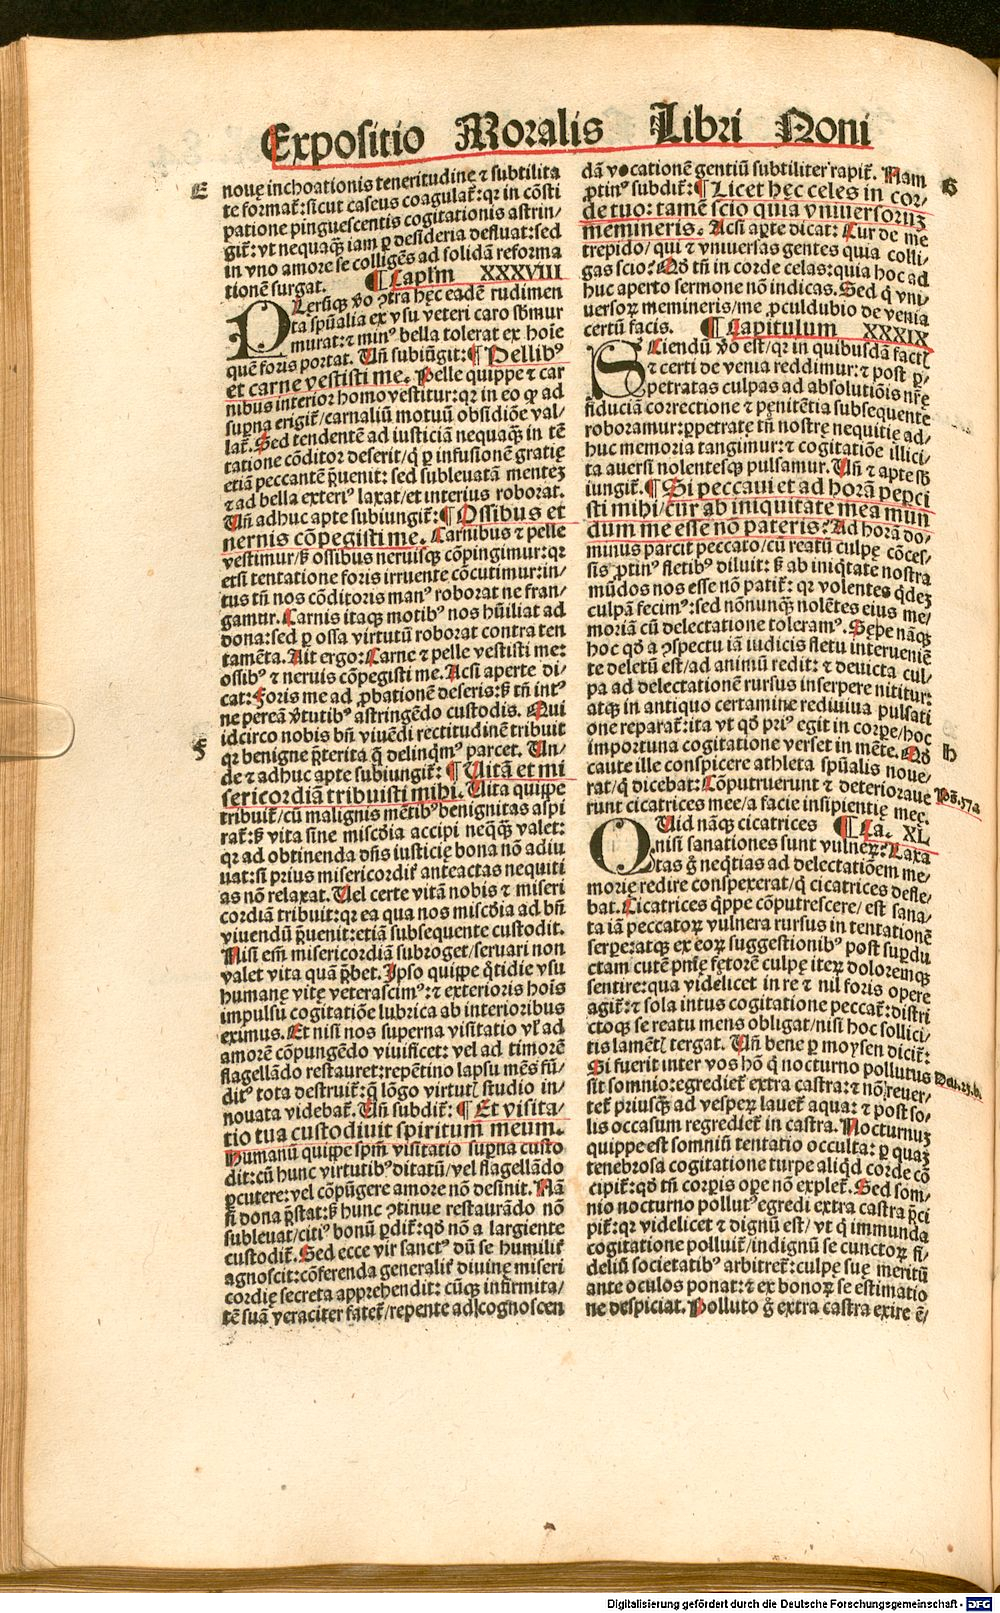 Expositio Moralis Libri Noni
E
nouę inchoationis teneritudine ⁊ subtilita
te format̃: sicut caseus coagulat̃: qr in cõsti
patione pinguescentis cogitationis astrin-
git̃: vt nequaq̃ iam ꝑ desideria defluat: sed
in vno amore se colligẽs ad solidã reforma
tionẽ surgat. ¶ Caplm XXXVIII
PLerũqꝫ ꝟo ꝯtra hęc eadẽ rudimen
ta spũalia ex vsu veteri caro s̃bmur
murat: ⁊ min⁹ bella tolerat ex hoĩe
quẽ foris portat. Vñ subiũgit: ¶ Pellib⁹
et carne vestisti me. Pelle quippe ⁊ car
nibus interior homo vestitur: qr in eo q̃ ad
suꝑna erigit̃/ carnaliũ motuũ obsidiõe val/
lat̃. Sed tendentẽ ad iusticiã nequaq̃ in tẽ
tatione cõditor deserit/ q̇ ꝑ infusionẽ gratię
etiã peccantẽ p̃uenit: sed subleuatã mentẽ
⁊ ad bella exteri⁹ laxat/ et interius roborat.
Vñ adhuc apte subiungit̃: ¶ Ossibus et
neruis cõpegisti me. Carnibus ⁊ pelle
vestimur/ s̃ ossibus neruisqꝫ cõpingimur: qr
etsi tentatione foris irruente cõcutimur: in/
tus tñ nos cõditoris man⁹ roborat ne fran/
gamur. Carnis itaqꝫ motib⁹ nos hũiliat ad
dona: sed ꝑ ossa virtutũ roborat contra ten
tamẽta. Ait ergo: Carne ⁊ pelle vestisti me:
ossib⁹ ⁊ neruis cõpegisti me. Acsi aperte di/
cat: Foris me ad ꝓbationẽ deseris: s̃ tñ int⁹
ne pereã ꝟtutib⁹ astringẽdo custodis. Qui
F
idcirco nobis bñ viuẽdi rectitudinẽ tribuit
qr benigne p̃terita q̃ delinqm⁹ parcet. Vn/
de ⁊ adhuc apte subiungit̃: ¶ Uitã et mi
sericordiã tribuisti mihi. Vita quippe
tribuit̃/ cũ malignis mẽtib⁹ benignitas aspi
rat̃: s̃ vita sine miscđia accipi neq̃qꝫ valet:
qr ad obtinenda dñs iusticię bona nõ adiu
uat: si prius misericordit̃ anteactas nequiti
as nõ relaxat. Vel certe vitã nobis ⁊ miseri
cordiã tribuit: qr ea qua nos miscđia ad bñ
viuendũ p̃uenit: etiã subsequente custodit.
Nisi em̃ misericordiã subroget/ seruari non
valet vita quã p̃bet. Ipso quippe q̇tidie vsu
humanę vitę veterascim⁹: ⁊ exterioris hoĩs
impulsu cogitatiõe lubrica ab interioribus
eximus. Et nisi nos superna visitatio vł ad
amorẽ cõpungẽdo viuificet: vel ad timorẽ
flagellãdo restauret: repẽtino lapsu mẽs fũ/
dit⁹ tota destruit̃: q̃ lõgo virtut̃ studio in/
nouata videbat̃. Vñ subdit̃: ¶ Et visita/
tio tua custodiuit spiritum meum.
Humanũ quippe spm̃ visitatio suꝑna custo
dit: cũ hunc virtutib⁹ ditatũ/ vel flagellãdo
ꝑcutere: vel cõpũgere amore nõ desinit. Nã
si dona p̃stat: s̃ hunc ꝯtinue restaurãdo nõ
subleuat/ citi⁹ bonũ ꝑdit̃: qđ nõ a largiente
custodit̃. Sed ecce vir sanct⁹ dũ se humilit̃
agnoscit: cõferenda generalit̃ diuinę miseri
cordię secreta apprehendit: cũqꝫ infirmita/
tẽ suã veraciter fatet̃/ repente ad cognoscen
dã vocationẽ gentiũ subtiliter rapit̃. Nam
G
ꝓtin⁹ subdit̃: ¶ Licet hęc celes in cor-
de tuo: tamẽ scio quia vniuersoruꝫ
memineris. Acsi aꝑte dicat: Cur de me
trepido/ qui ⁊ vniuersas gentes quia colli/
gas scio: Qđ tñ in corde celas: quia hoc ad
huc aperto sermone nõ indicas. Sed q̇ vni/
uersoꝝ memineris/ me ꝓculdubio de venia
certũ facis. ¶ Capitulum XXXIX
SCiendũ ꝟo est/ qr in quibusdã fact̃
⁊ certi de venia reddimur: ⁊ post ꝑ/
petratas culpas ad absolutiõis nr̃ę
fiduciã correctione ⁊ pęnitẽtia subsequente
roboramur: ꝑpetratę tñ nostrę nequitię ad/
huc memoria tangimur: ⁊ cogitatiõe illici/
ta auersi nolentesqꝫ pulsamur. Vñ ⁊ apte sb̃
iungit̃. ¶ Si peccaui et ad horã peperci
sti mihi/ cur ab iniquitate mea mun
dum me esse nõ pateris? Ad hora do/
minus parcit peccato/ cũ reatũ culpę cõces/
sis ꝓtin⁹ fletib⁹ diluit: s̃ ab iniq̇tate nostra
mũdos nos esse nõ patit̃: qr volentes q̇deꝫ
culpã fecim⁹: sed nõnunq̃ nolẽtes eius me/
moriã cũ delectatione toleram⁹. Sępe nãqꝫ
hoc qđ a ꝯspectu iã iudicis fletu interueniẽ
te deletũ est/ ad animũ redit: ⁊ deuicta cul/
pa ad delectationẽ rursus inserpere nititur:
atqꝫ in antiquo certamine rediuiua pulsati
one reparat̃: ita vt qđ pri⁹ egit in corꝑe/ hoc
importuna cogitatione verset in mẽte. Qđ
h
caute ille conspicere athleta spũalis noue/
rat/ q̇ dicebat: Cõputruerunt ⁊ deteriorauе
Ps. 37.a
runt cicatrices mee/ a facie insipientię meę.
¶ Ca. XL
QUid nãqꝫ cicatrices
nisi sanationes sunt vulneꝝ? Laxa
tas g̊ neq̇tias ad delectatiõem me/
morię redire conspexerat/ q̇ cicatrices defle/
bat. Cicatrices q̇ppe cõputrescere/ est sana/
ta iã peccatoꝝ vulnera rursus in tentationẽ
serpere: atqꝫ ex eoꝝ suggestionib⁹ post suꝑdu
ctam cutẽ pnię fętorẽ culpę iteꝝ doloremqꝫ
sentire: qua videlicet in re ⁊ nil foris opere
agit̃: ⁊ sola intus cogitatione peccat̃: distri
ctoqꝫ se reatu mens obligat/ nisi hoc sollici/
tis lamẽt̃ tergat. Vñ bene ꝑ moysen dicit̃:
Si fuerit inter vos hõ q̇ nocturno pollutus
Deu. 23.b.
sit somnio: egrediet̃ extra castra: ⁊ nõ reuer/
tet̃ priusq̃ ad vesperꝝ lauet̃ aqua: ⁊ post so/
lis occasum regrediet̃ in castra. Nocturnuꝫ
quippe est somniũ tentatio occulta: ꝑ quaꝫ
tenebrosa cogitatione turpe aliq̇d corde cõ
cipit̃: qđ tñ corꝑis oꝑe nõ explet̃. Sed som/
nio nocturno pollut⁹ egredi extra castra p̃ci
pit̃: qr videlicet ⁊ dignũ est/ vt q̇ immunda
cogitatione polluit̃/ indignũ se cunctoꝝ fi/
deliũ societatib⁹ arbitret̃: culpę suę meritũ
ante oculos ponat: ⁊ ex bonoꝝ se estimatio
ne despiciat. Polluto g̊ extra castra exire ẽ/
Digitalisierung gefördert durch die Deutsche Forschungsgemeinschaft - DFG